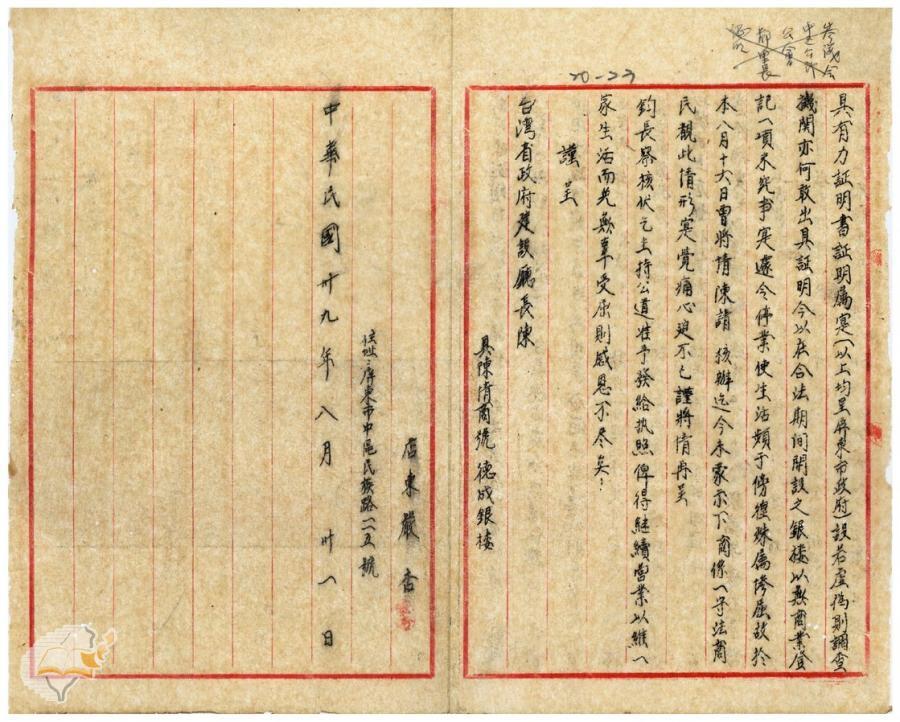 具有力証明書証明属寔(以上均呈屏東市政府)設若虛偽則調查
機関亦何敢出具証明今以在合法期间開設之銀楼以無商業登
記一項未究事寔遽令停業使生活頻于傍徨殊属慘屈故於
本八月十六日曾將情陳請 核辦迄今未蒙示下商係一守法商
民覩此情形寔覺痛心迫不已謹將情再呈
鈞長察核伏乞主持公道准予發給执照俾得継續営業以維一
家生活而免無辜受屈則感恩不尽矣!
謹呈
台湾省政府建設廳長陳
具陳情商號 德成銀楼
店東嚴杏
住址:屏東市中區民族路一一五號
中華民國卅九年八月卅一日
20-23
参議会
公會
鄰里長